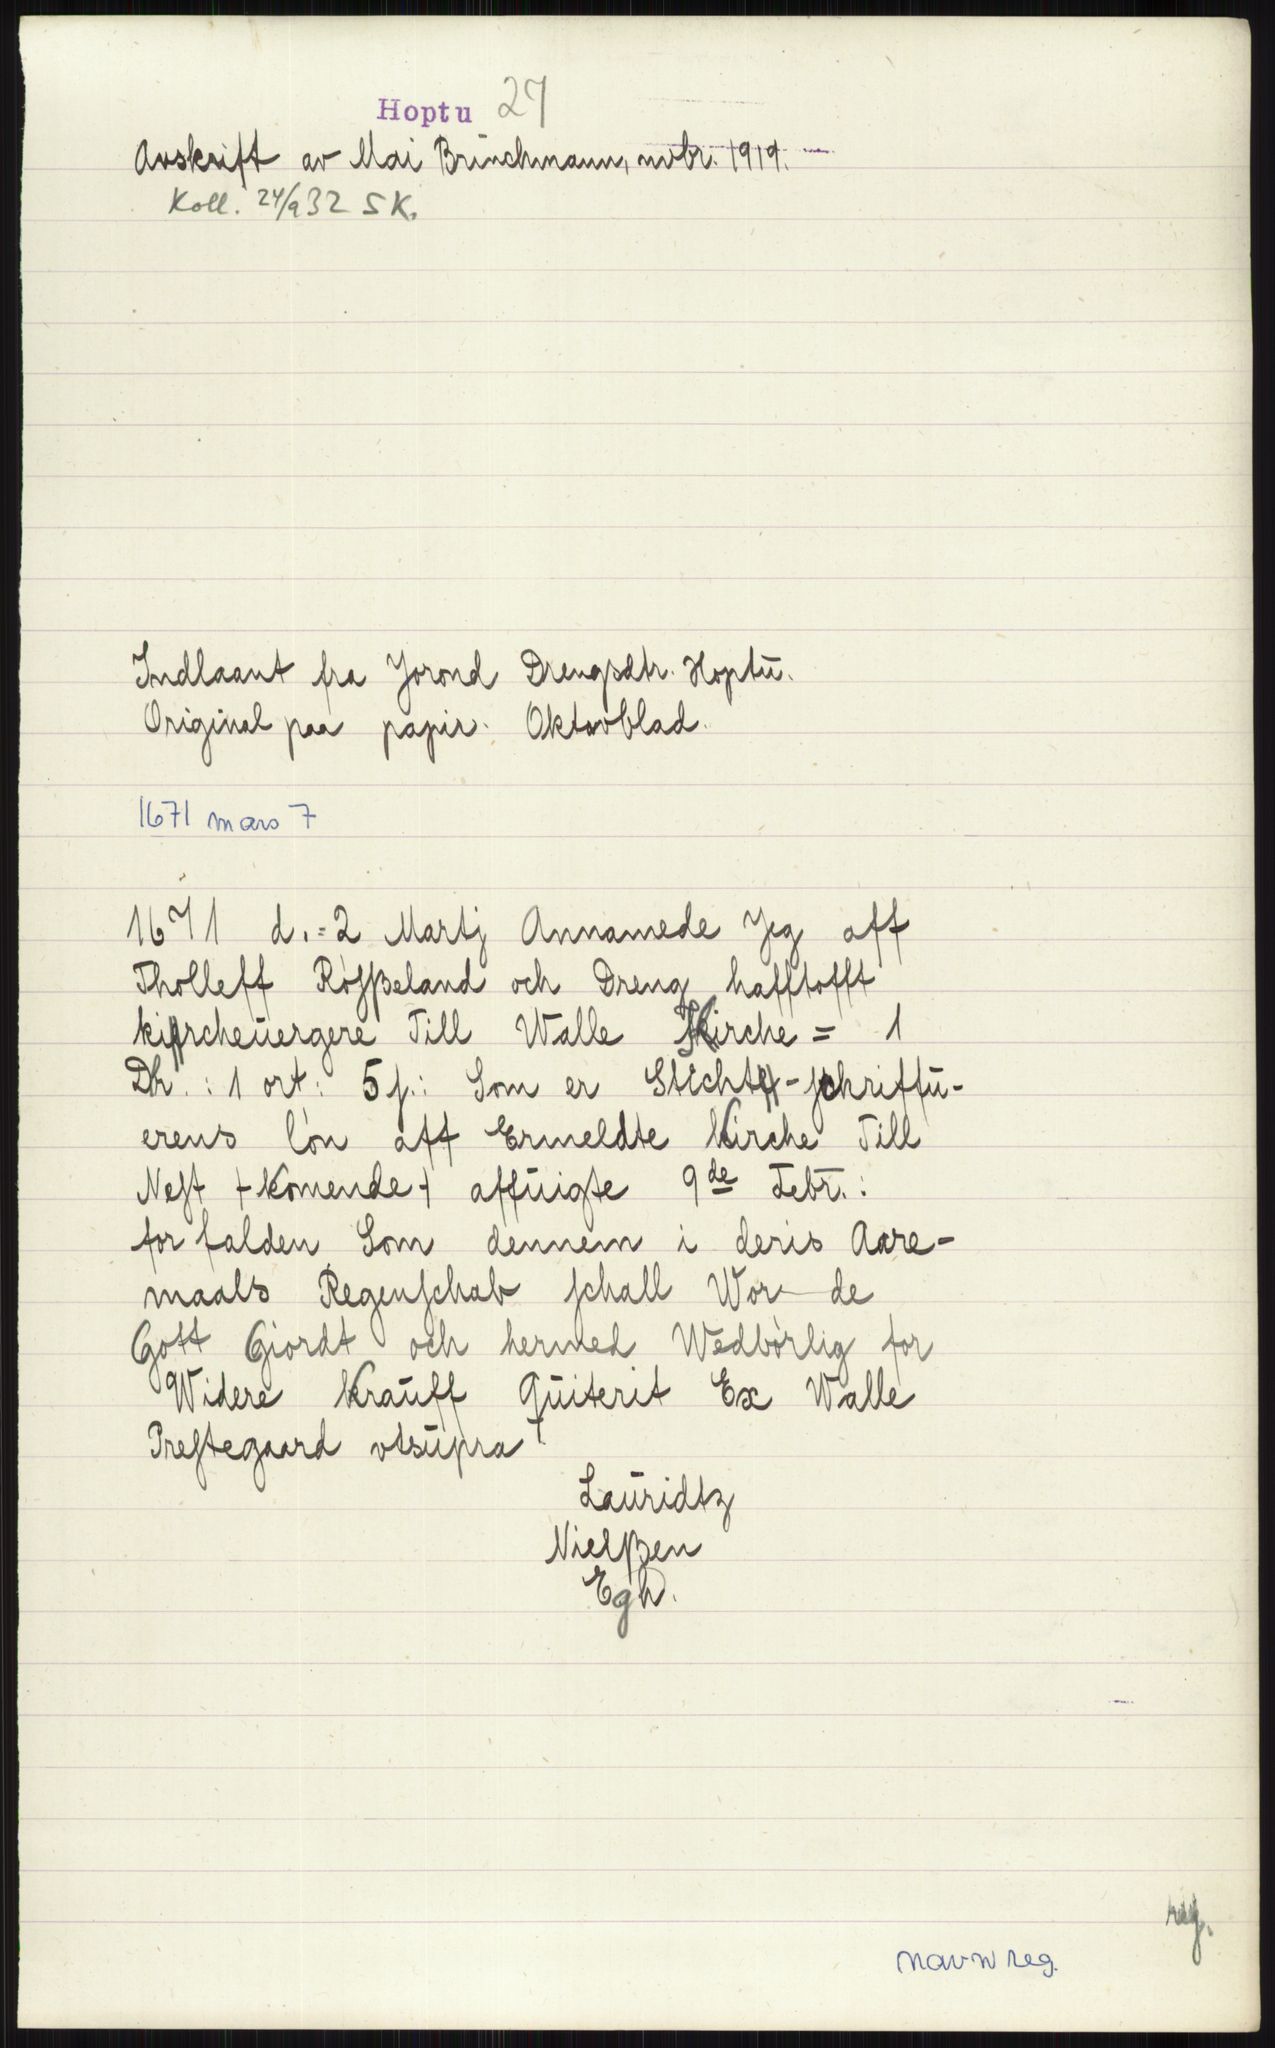 Hoptu 27
Avskrift av Mai Brinchmann, nvbr. 1919.
Koll. 24/9 32 SK.
Indlaant fra Jorond Drengsdtr. Hoptŭ.
Original paa papir. Oktavblad.
1671 mars 7
1671 d.=2 Martj Annamede Jeg aff
Tholleff Rósßeland och Dreng hafftofft
kircheŭergere Till Walle Kirche = 1
Dlr.: 1 ort: 5 ſ.: Som er Sticht-schriffŭ-
erens lón aff Ermeldte Kirche Till
Neſt +komende+ affŭigte 9de Febr.:
for falden Som dennem i deris Aare-
maals Regenſchab ſchall Wor-de
Gott Giordt och hermed Wedbórlig for
Widere Krauff Qŭiterit Ex Walle
Preſtegaard vtsŭpra
Laŭridtz
Nielßen
Egh.
reg.
navnreg.